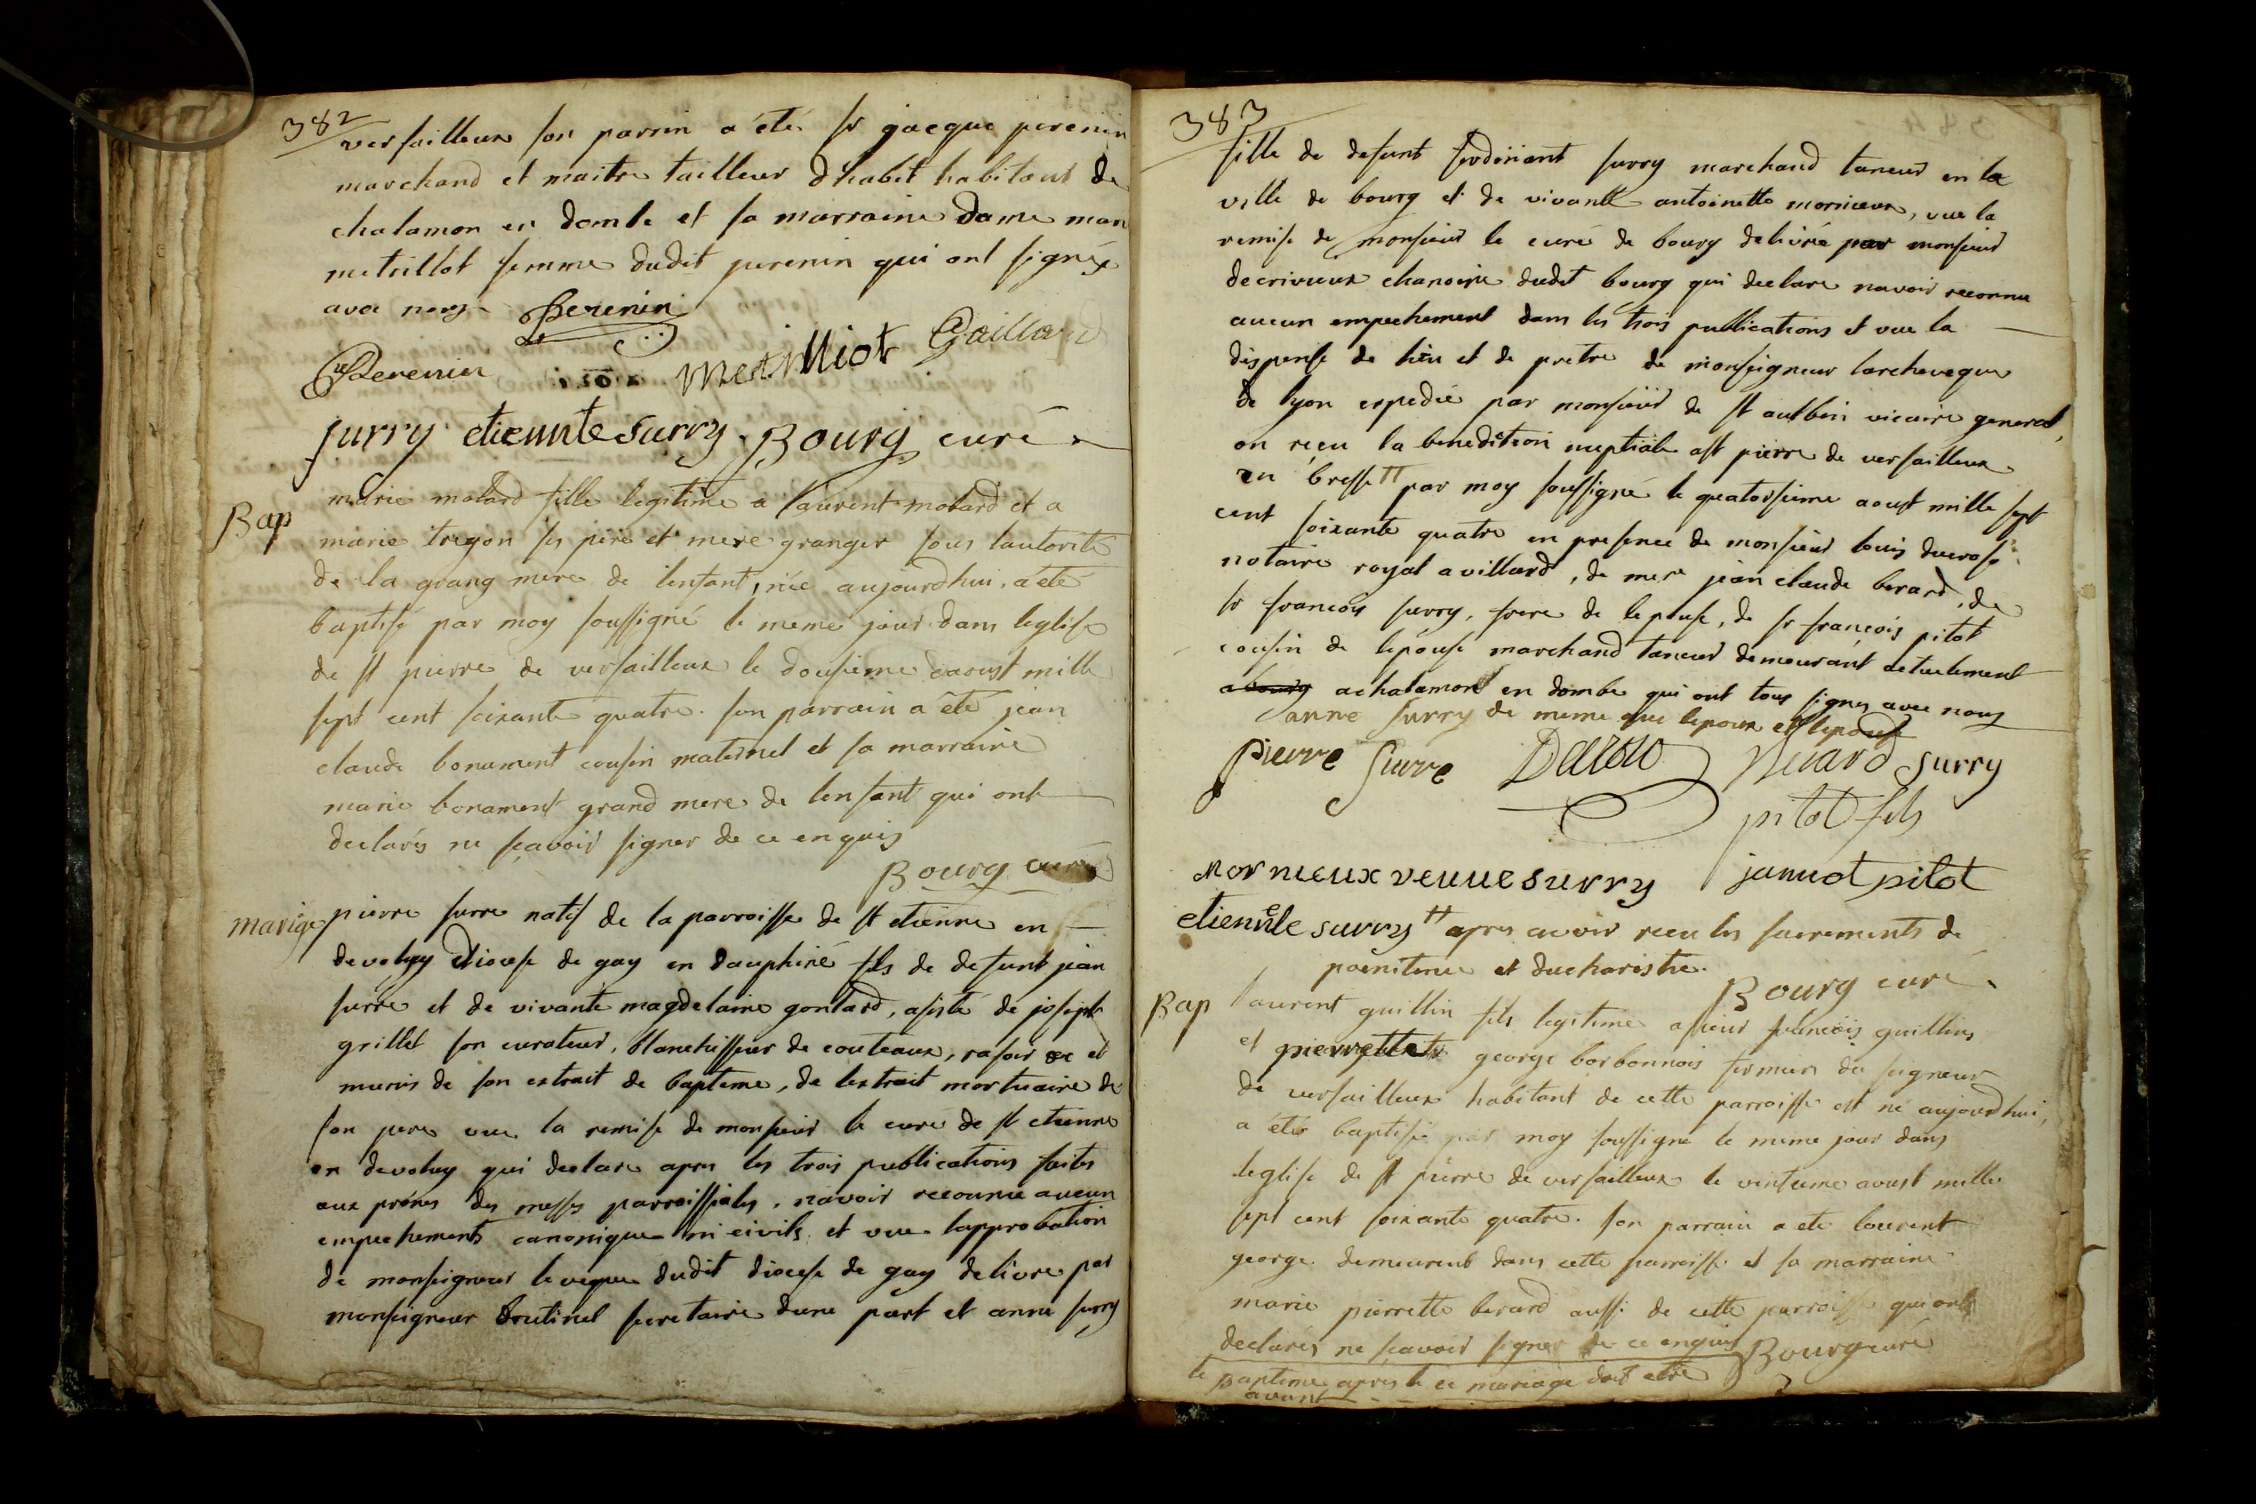 382
versailleux son parrin a été sr jacque perenin
marchand et maitre tailleur dhabit habitant de
chalamon en dombe et sa marraine dame marie
metrillot femme dudit perenin qui ont signés
avec nous Perenin
Perenin metrilliot Gaillard
surry etiennte surry Bourg curé
Bap
marie molard fille legitime a laurent molard et a
marie tregon ses père et mere granger sous lautorité
de la grang mere de lenfant, née aujourdhui, a été
baptisé par moy soussigné le meme jour dans leglise
de st pierre de versailleux le dousieme daoust mille
sept cent soixante quatre. son parrain a été jean
claude bonament cousin maternel et sa marraine
marie bonament grand mere de lenfant qui ont
declarés ne sçavoir signer de ce enquis
Bourg curé
mariage
pierre surre natif de la parroisse de st etienne en
devoluy diocese de gap en dauphiné fils de defunt jean
surre et de vivante magdelaine gontard, asisté de joseph
grillet son curateur, blanchisseur de couteaux, rasoir et
munis de son extrait de bapteme, de lextrait mortuaire de
son pere vue la remise de monsieur le curé de st etienne
en devoluy qui declare apres les trois publications faites
aux prônes des messes parroissiales, navoir reconnu aucun
empechements canonique ni civils, et vue lapprobation
de monseigneur leveque dudit diocese de gap delivré par
monseigneur brutinel secretaire dune part et anne surry
383
fille de defunt ferdinant surry marchand taneur en la
ville de bourg et de vivante antoinette mornieux, vue la
remise de monsieur le curé de bourg delivrée par monsieur
decrivieux chanoine dudit bourg qui declare navoir reconnu
aucun empechement dans les trois publications et vue la
dispense de lieu et de pretre de monseigneur larcheveque
de lyon expedié par monsieur de st aulbin vicaire general,
on reçu la benediction nuptiale a st pierre de versailleux
en bresse # par moy soussigné le quatorsieme aoust mille sept
cent soixante quatre en presence de monsieur louis ducrose
notaire royal a villard, de mere jean claude berard, de
sr francois surry, frere de lepouse, de sr françois pitot
cousin de lépouse marchand taneur demeurant actuelement
a bourg a chalamont en dombe qui ont tous signés avec nous
anne surry de meme que lepoux et lepouse
pierre surre surry
pitot fils
mornieux veuue surry jannot pitot
etiennte surry # apres avoir reçu les sacrements de
poenitence et ducharistie.
Bourg curé
Bap
laurent guillin fils legitime a sieur francois guillin
et pierrette george borbonnois fermier du seigneur
de versailleux habitant de cette parroisse est né aujourdhui,
a été baptisé par moy soussigné le meme jour dans
leglise de st pierre de versailleux le vintieme aoust mille
sept cent soixante quatre. son parrain a ete laurent
george demeurent dans cette parroisse et sa marraine
marie pierrette berard aussi de cette parroisse qui ont
declarés ne sçavoir signer de ce enquis Bourg curé
le bapteme apres le ce mariage doit etre
avant